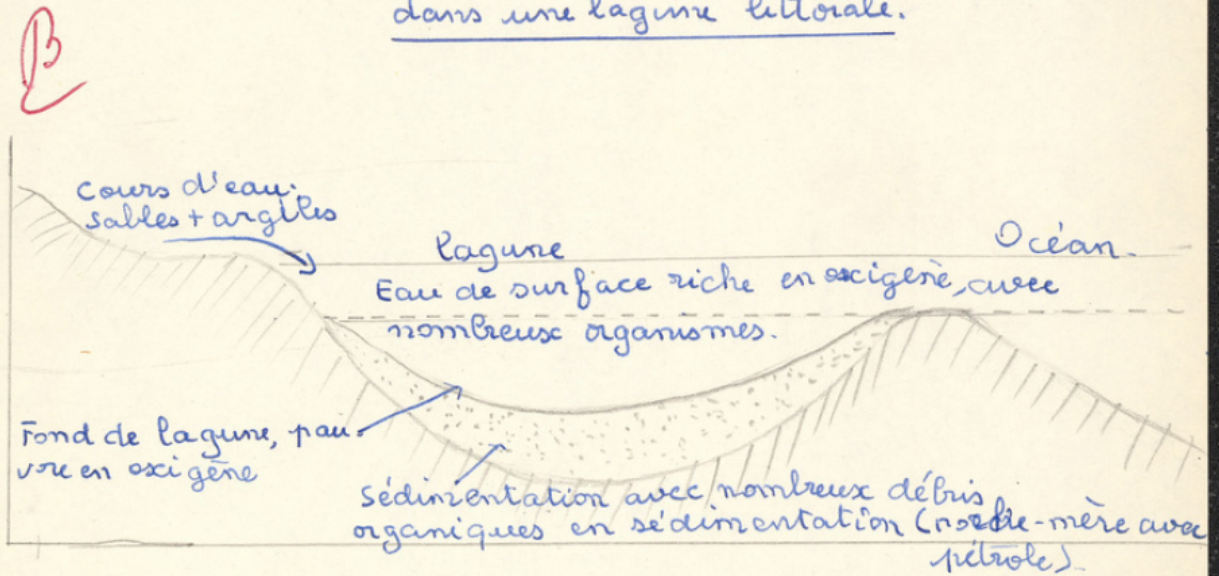 dans une lagune littorale.
B
Cours d'eau:
sables + argiles
lagune
Océan.
Eau de surface riche en oxigène, avec
nombreux organismes.
Fond de lagune, pau-
vre en oxigène
Sédimentation avec nombreux débris
organiques en sédimentation (roche-mère avec
pétrole).